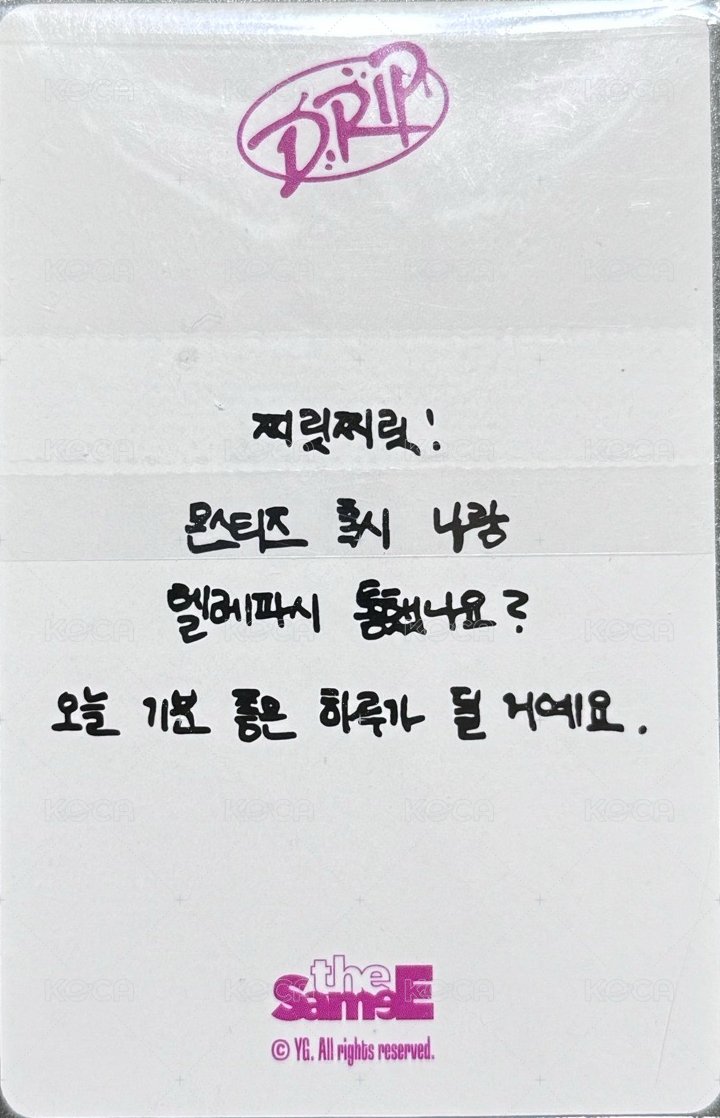 DRIP
찌릿찌릿!
몬스티즈 혹시 나랑
텔레파시 통했나요?
오늘 기분 좋은 하루가 될 거예요.
the
SameE
© YG. All rights reserved.
KOCA